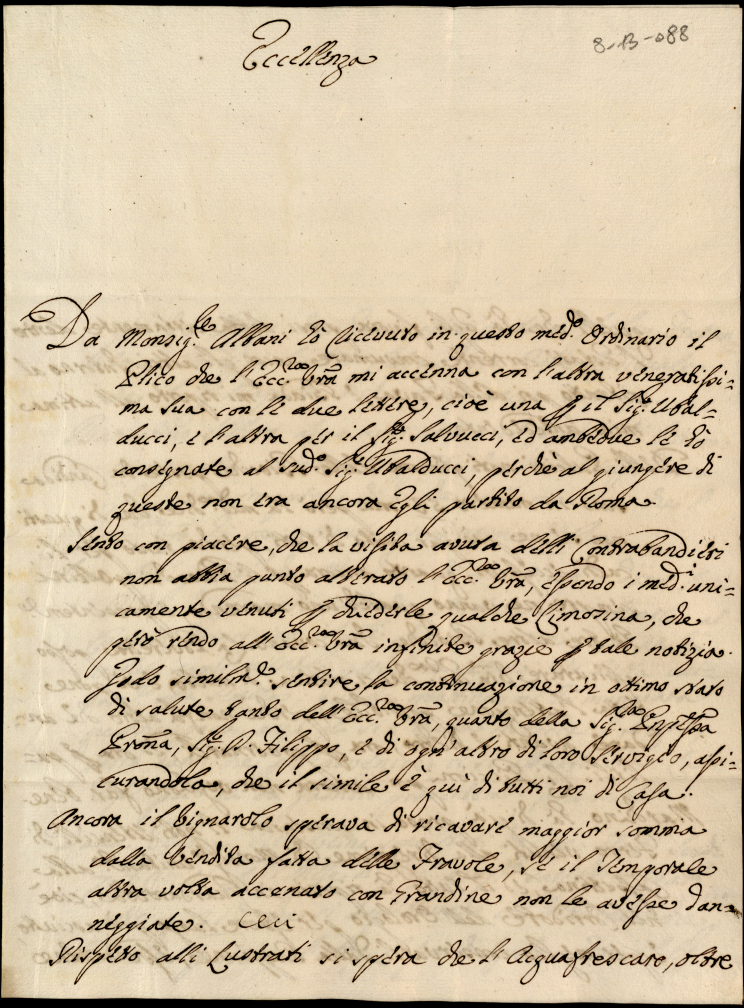 8-13-088
Eccellenza
Da Monsig.re Albani hò ricevuto in questo med.o Ordinario il
Plico che l'Ecc.za Vrã mi accenna con l'altra veneratissi=
ma sua con le due lettere, cioè una p il Sig.r Ubal=
ducci, e l'altra per il Sig.r Salvucci, ed ambedue le hò
consegnate al sud.o Sig.r Ubalducci, perchè al giungere di
queste non era ancora Egli partito da Roma.
Sento con piacere, che la visita avuta delli Contrabandieri
non abbia punto alterato l'Ecc.za Vrã, essendo i med.i uni=
camente venuti p chiederle qualche limosina, che
però rendo all'Ecc.za Vrã infinite grazie p tale notizia.
Godo similm.e sentire la continuazione in ottimo stato
di salute tanto dell'Ecc.za Vrã, quanto della Sig.ra Pnpessa
Prõna, Sig.r D. Filippo, e di ogn'altro di loro servigio, assi=
curandola, che il simile è quì di tutti noi di Casa.
Ancora il Vignarolo sperava di ricavare maggior somma
dalla Vendita fatta delle Fravole, se il Temporale
altra volta accenato con Grandine non le avesse dan=
neggiate. ceci
Rispetto alli Lustrati si spera che l'Acquafrescaro, oltre